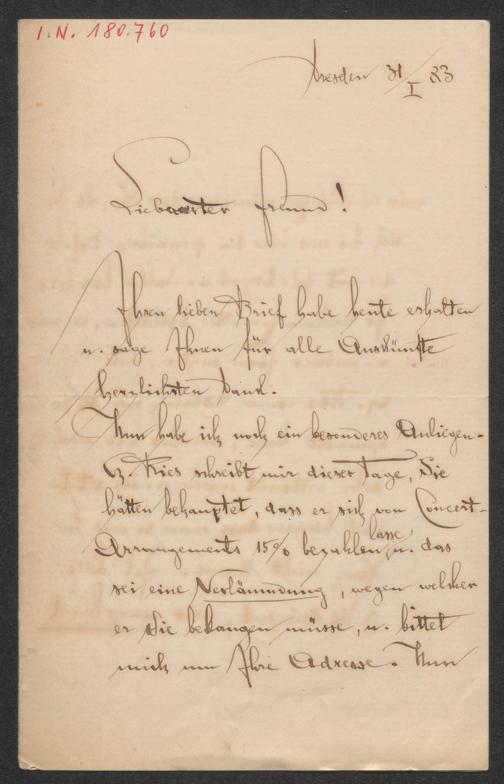 I.N. 180.760
Dresden 31/I 83
Liebwerter Freund!
Ihren lieben Brief habe heute erhalten
u. sage Ihnen für alle Auskünfte
herzlichsten Dank.
Nun habe ich noch ein besonderes Anliegen.
Ries schreibt mir dieser Tage, Sie
hätten behauptet, dass er sich von Concert-
Arrangements 15% bezahlen lasse u. das
sei eine Verläumdung, wegen welcher
er Sie belangen müsse, u. bittet
mich um Ihre Adresse. Nun